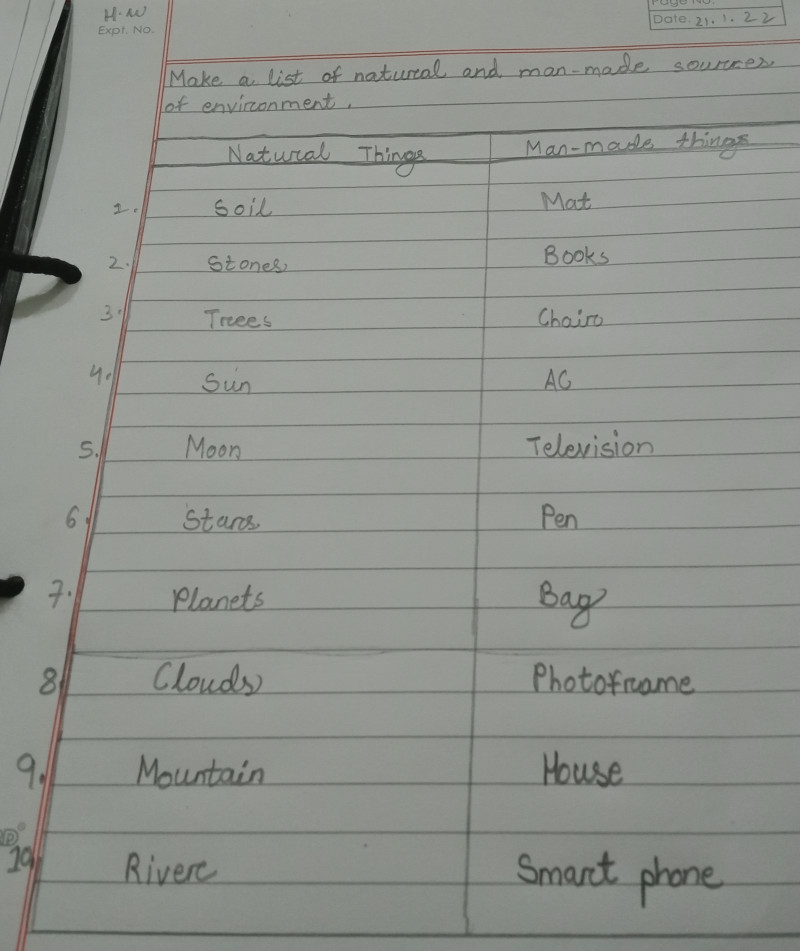 H.W
Expt. No.
Page No.
Date. 21.1.22
Make a list of natural and man-made sources
of environment.
Natural Things Man-made things
1. Soil Mat
2. Stones Books
3. Trees Chair
4. Sun AC
5. Moon Television
6. Stars Pen
7. Planets Bag
8. Clouds Photoframe
9. Mountain House
10. River Smart phone